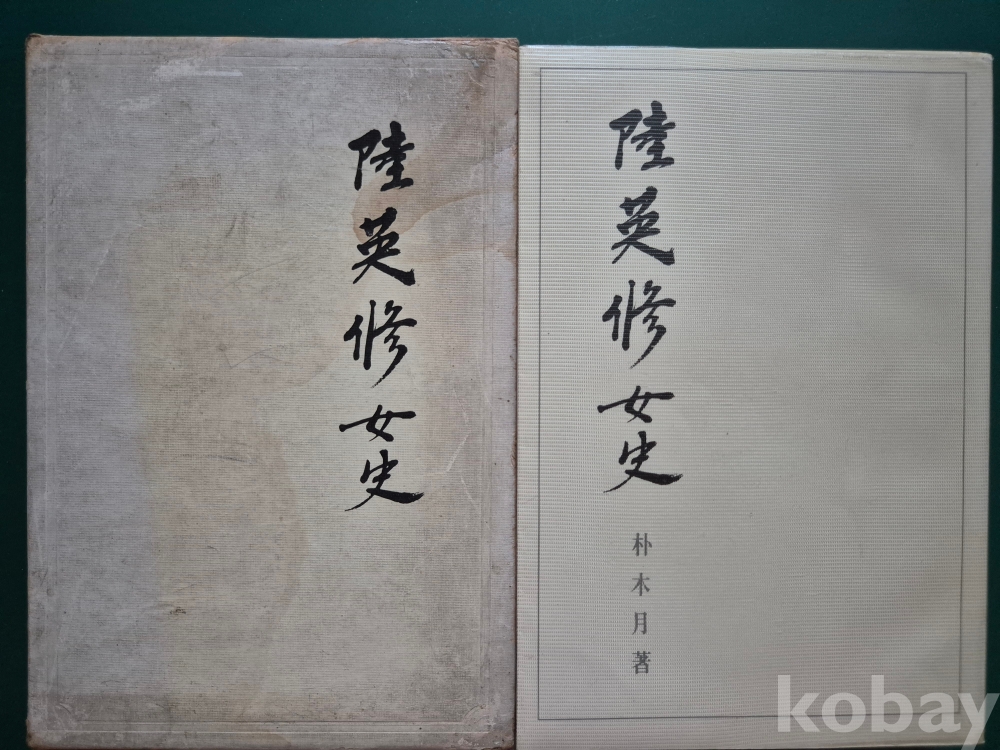 陸英修女史
陸英修女史
朴木月著
kobay